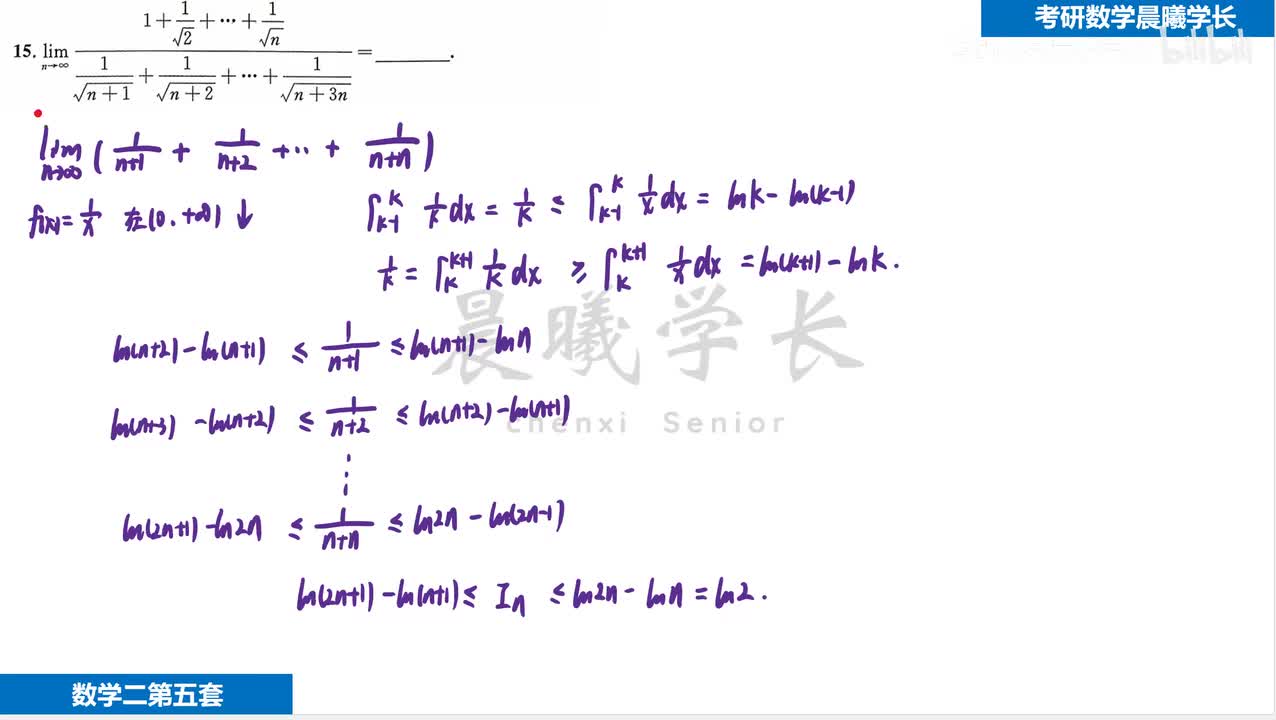 考研数学晨曦学长
bilibili
15. lim_{n→∞} (1 + 1/√2 + ··· + 1/√n) / (1/√(n+1) + 1/√(n+2) + ··· + 1/√(n+3n)) = ________.
lim_{n→∞} ( 1/(n+1) + 1/(n+2) + ··· + 1/(n+n) )
f(x) = 1/x 在(0, +∞) ↓
∫_{k-1}^{k} 1/k dx = 1/k ≤ ∫_{k-1}^{k} 1/x dx = ln k - ln(k-1)
1/k = ∫_{k}^{k+1} 1/k dx ≥ ∫_{k}^{k+1} 1/x dx = ln(k+1) - ln k.
晨曦学长
chenxi Senior
ln(n+2) - ln(n+1) ≤ 1/(n+1) ≤ ln(n+1) - ln n
ln(n+3) - ln(n+2) ≤ 1/(n+2) ≤ ln(n+2) - ln(n+1)
⋮
ln(2n+1) - ln2n ≤ 1/(n+n) ≤ ln2n - ln(2n-1)
ln(2n+1) - ln(n+1) ≤ In ≤ ln2n - ln n = ln2.
数学二第五套